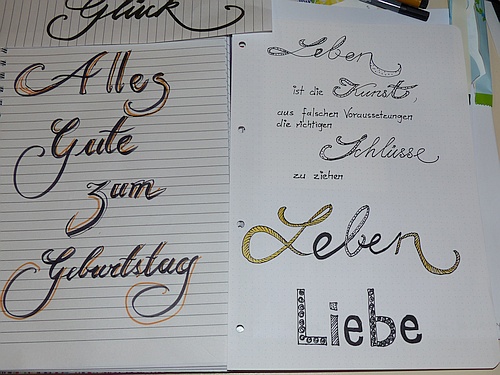 Glück
Alles
Gute
zum
Geburtstag
Leben
ist die Kunst,
aus falschen Voraussetzungen
die richtigen
Schlüsse
zu ziehen
Leben
Liebe